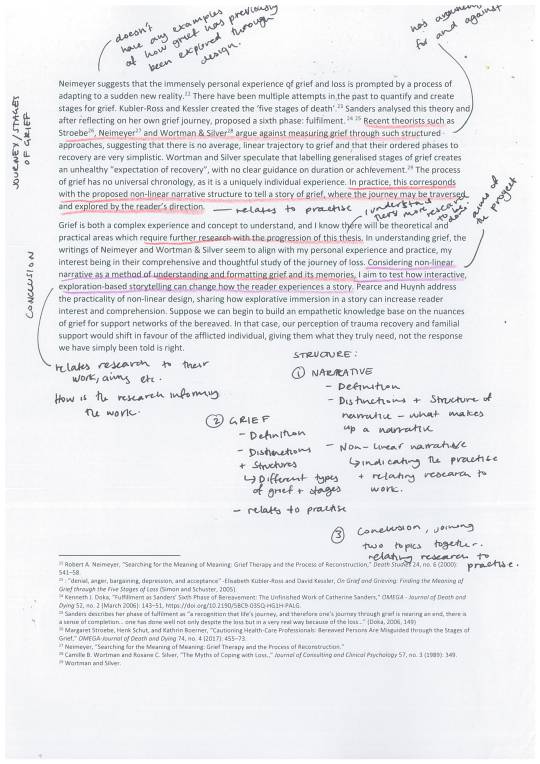 doesn't
have any examples
of how grief was previously
been explored through
design.
has arguments
for and against
Neimeyer suggests that the immensely personal experience of grief and loss is prompted by a process of
adapting to a sudden new reality.²² There have been multiple attempts in the past to quantify and create
stages for grief. Kubler-Ross and Kessler created the 'five stages of death'.²³ Sanders analysed this theory and
after reflecting on her own grief journey, proposed a sixth phase: fulfilment. ²⁴ ²⁵ Recent theorists such as
Stroebe²⁶, Neimeyer²⁷ and Wortman & Silver²⁸ argue against measuring grief through such structured
approaches, suggesting that there is no average, linear trajectory to grief and that their ordered phases to
recovery are very simplistic. Wortman and Silver speculate that labelling generalised stages of grief creates
an unhealthy "expectation of recovery", with no clear guidance on duration or achievement.²⁹ The process
of grief has no universal chronology, as it is a uniquely individual experience. In practice, this corresponds
with the proposed non-linear narrative structure to tell a story of grief, where the journey may be traversed
and explored by the reader's direction.
JOURNEY/STAGES
OF GRIEF
relates to practise
understands
more research
to be
done
aims of
the project
Grief is both a complex experience and concept to understand, and I know there will be theoretical and
practical areas which require further research with the progression of this thesis. In understanding grief, the
writings of Neimeyer and Wortman & Silver seem to align with my personal experience and practice, my
interest being in their comprehensive and thoughtful study of the journey of loss. Considering non-linear
narrative as a method of understanding and formatting grief and its memories, I aim to test how interactive,
exploration-based storytelling can change how the reader experiences a story. Pearce and Huynh address
the practicality of non-linear design, sharing how explorative immersion in a story can increase reader
interest and comprehension. Suppose we can begin to build an empathetic knowledge base on the nuances
of grief for support networks of the bereaved. In that case, our perception of trauma recovery and familial
support would shift in favour of the afflicted individual, giving them what they truly need, not the response
we have simply been told is right.
CONCLUSION
relates research to their
work, aims etc.
How is the research informing
the work.
STRUCTURE:
① NARRATIVE
- Definition
- Distinctions + Structure of
narrative - what makes
up a narrative
- Non-linear narrative
↳ indicating the practise
+ relating research to
work.
② GRIEF
- Definition
- Distinctions
+ Structures
↳ Different types
of grief + stages
- relates to practise
③ Conclusion, joining
two topics together.
relating research to
practise.
²² Robert A. Neimeyer, "Searching for the Meaning of Meaning: Grief Therapy and the Process of Reconstruction," Death Studies 24, no. 6 (2000):
541–58.
²³ : "denial, anger, bargaining, depression, and acceptance" -Elisabeth Kubler-Ross and David Kessler, On Grief and Grieving: Finding the Meaning of
Grief through the Five Stages of Loss (Simon and Schuster, 2005).
²⁴ Kenneth J. Doka, "Fulfillment as Sanders' Sixth Phase of Bereavement: The Unfinished Work of Catherine Sanders," OMEGA - Journal of Death and
Dying 52, no. 2 (March 2006): 143–51, https://doi.org/10.2190/58C9-035Q-HG1H-PALG.
²⁵ Sanders describes her phase of fulfilment as "a recognition that life's journey, and therefore one's journey through grief is nearing an end, there is
a sense of completion... one has done well not only despite the loss but in a very real way because of the loss..." (Doka, 2006, 149)
²⁶ Margaret Stroebe, Henk Schut, and Kathrin Boerner, "Cautioning Health-Care Professionals: Bereaved Persons Are Misguided through the Stages of
Grief," OMEGA-Journal of Death and Dying 74, no. 4 (2017): 455–73.
²⁷ Neimeyer, "Searching for the Meaning of Meaning: Grief Therapy and the Process of Reconstruction."
²⁸ Camille B. Wortman and Roxane C. Silver, "The Myths of Coping with Loss.," Journal of Consulting and Clinical Psychology 57, no. 3 (1989): 349.
²⁹ Wortman and Silver.